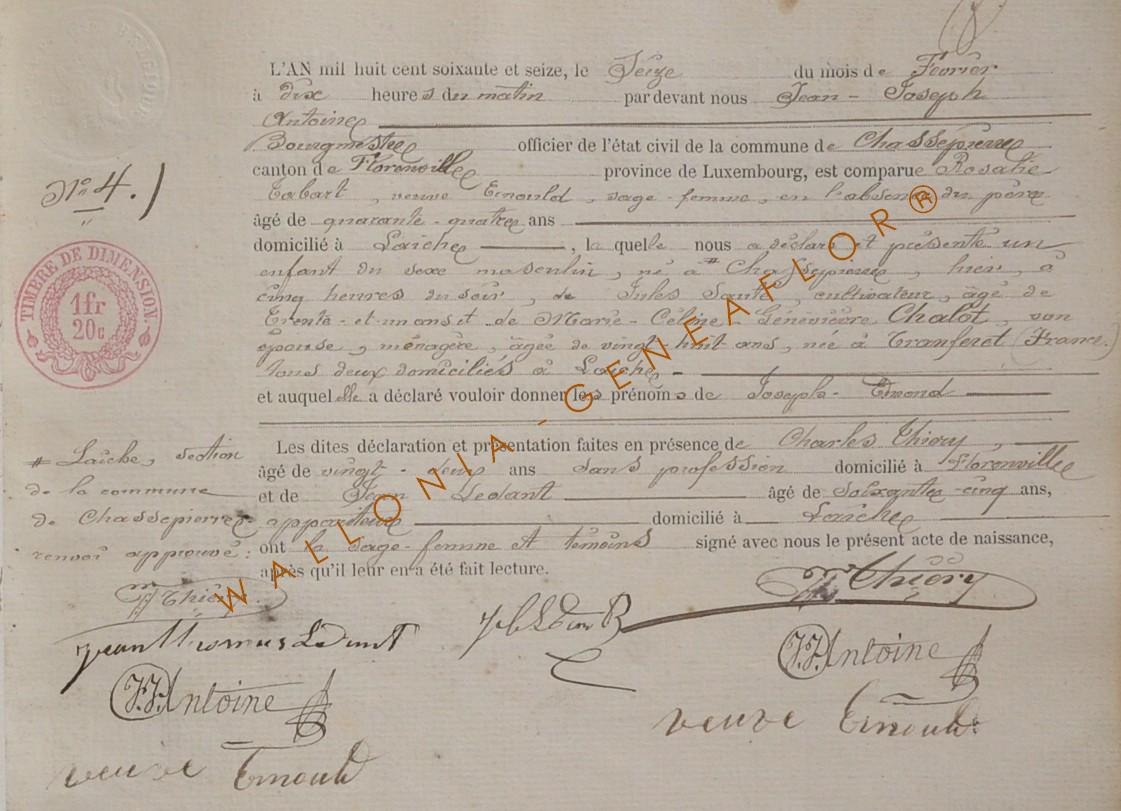 L'AN mil huit cent soixante et seize, le Seize du mois de Fevrier
à dix heures du matin par devant nous Jean - Joseph
Antoine
Bourgmestre officier de l'état civil de la commune de Chassepierre
canton de Florenville province de Luxembourg, est comparue Rosalie
Tabart, veuve Ernould, sage-femme, en l'absence du père
âgé de quarante-quatre ans
domicilié à Laiche, la quelle nous a déclaré et présenté un
enfant du sexe masculin, né à # Chassepierre, hier, à
cinq heures du soir, de Jules Santé, cultivateur, âgé de
trente-et-un ans et de Marie-Céline-Génévieve Chalot, son
épouse, ménagère, âgée de vingt huit ans, née à (France)
tous deux domiciliés à Laiche
et auquel elle a déclaré vouloir donner les prénoms de Joseph-Edmond
Les dites déclaration et présentation faites en présence de Charles Thiery,
âgé de vingt-deux ans sans profession domicilié à Florenville
et de Jean Ledant âgé de soixante-cinq ans,
appariteur domicilié à Laiche
ont la sage-femme et témoins signé avec nous le présent acte de naissance,
après qu'il leur en a été fait lecture.
N° 4.
TIMBRE DE DIMENSION
1fr
20c
# Laiche, section
de la commune
de Chassepierre
renvoi approuvé:
Thiéry
jean thomas Ledant
J.J. Antoine
veuve Ernould
Thiéry
J.J. Antoine
veuve Ernould
WALLONIA-GENEAFLOR®